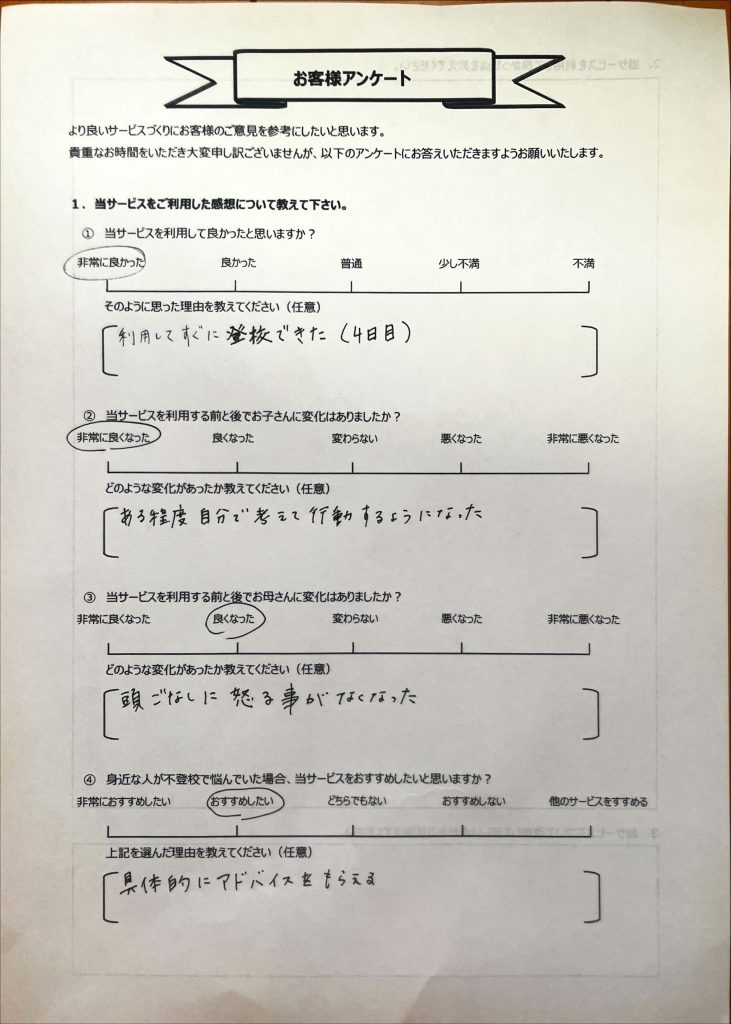 お客様アンケート
より良いサービスづくりにお客様のご意見を参考にしたいと思います。
貴重なお時間をいただき大変申し訳ございませんが、以下のアンケートにお答えいただきますようお願いいたします。
1．当サービスをご利用した感想について教えて下さい。
① 当サービスを利用して良かったと思いますか？
非常に良かった 良かった 普通 少し不満 不満
そのように思った理由を教えてください（任意）
利用してすぐに登校できた（4日目）
② 当サービスを利用する前と後でお子さんに変化はありましたか？
非常に良くなった 良くなった 変わらない 悪くなった 非常に悪くなった
どのような変化があったか教えてください（任意）
ある程度自分で考えて行動するようになった
③ 当サービスを利用する前と後でお母さんに変化はありましたか？
非常に良くなった 良くなった 変わらない 悪くなった 非常に悪くなった
どのような変化があったか教えてください（任意）
頭ごなしに怒る事がなくなった
④ 身近な人が不登校で悩んでいた場合、当サービスをおすすめしたいと思いますか？
非常におすすめしたい おすすめしたい どちらでもない おすすめしない 他のサービスをすすめる
上記を選んだ理由を教えてください（任意）
具体的にアドバイスをもらえる